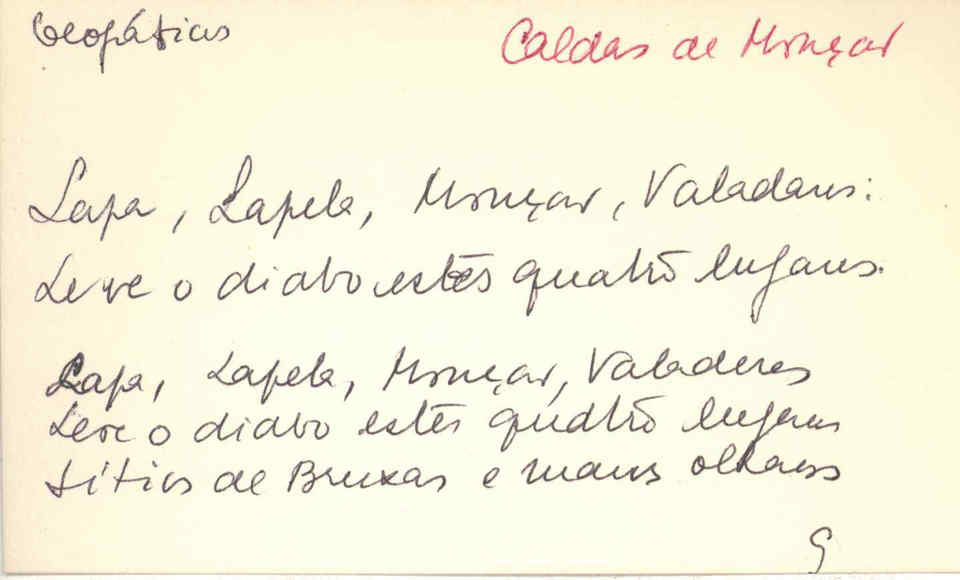 Geopáticas
Caldas de Monçao
Lapa, Lapela, Monçao, Valadares:
Leve o diabo estes quatro lugares.
Lapa, Lapela, Monçao, Valadares
Leve o diabo estes quatro lugares
Sitios de Bruxas e maus olhares
G